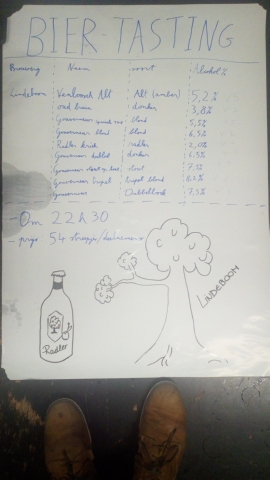 BIER-TASTING
Brouwerij Naam soort Alcohol %
Lindeboom Venloosch Alt Alt (amber) 5,2%
oud bruin donker 3,5%
Gouverneur blond 5,5%
Gouverneur blond blond 6,5%
Radler radler 2,0%
Gouverneur dubbel donker 6.5%
Gouverneur stout 7.5%
Gouverneur tripel blond
Gouverneur 7.5%
- Om 22h30
- prijs 54 streepjes/deelnemer
LINDEBOOM
Radler